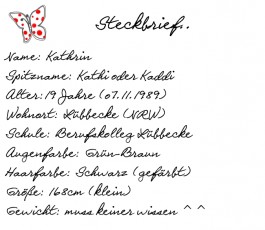 Steckbrief.
Name: Kathrin
Spitzname: Kathi oder Kaddi
Alter: 19 Jahre (07.11.1989)
Wohnort: Lübbecke (NRW)
Schule: Berufskolleg Lübbecke
Augenfarbe: Grün-Braun
Haarfarbe: Schwarz (gefärbt)
Größe: 168cm (klein)
Gewicht: muss keiner wissen ^^